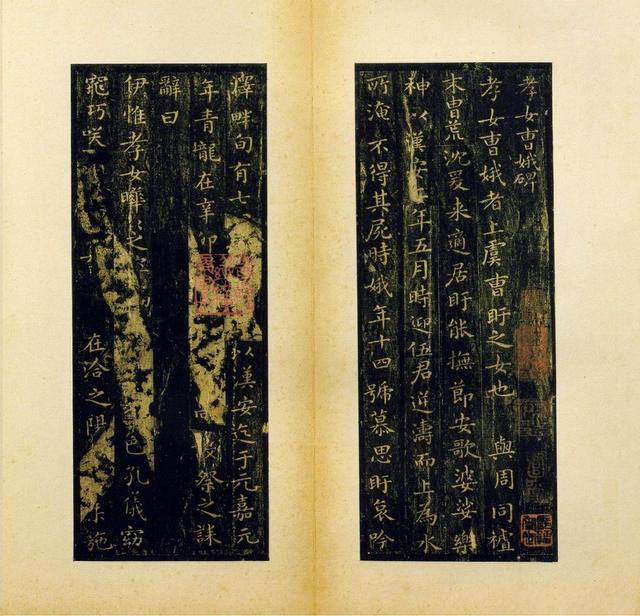 孝女曹娥碑
孝女曹娥者上虞曹盱之女也 與周同
末胄荒沈爰来適居盱能撫節安歌婆娑樂
神以漢安年五月時迎伍君逆濤而上為水
所淹不得其屍時娥年十四號慕思盱哀吟
澤畔旬有七 以漢安迄于元嘉元
年青龍在辛卯 祭之誄
辭曰
伊惟孝女曄之 色孔儀窈
窕巧咲 在洽之陽 施